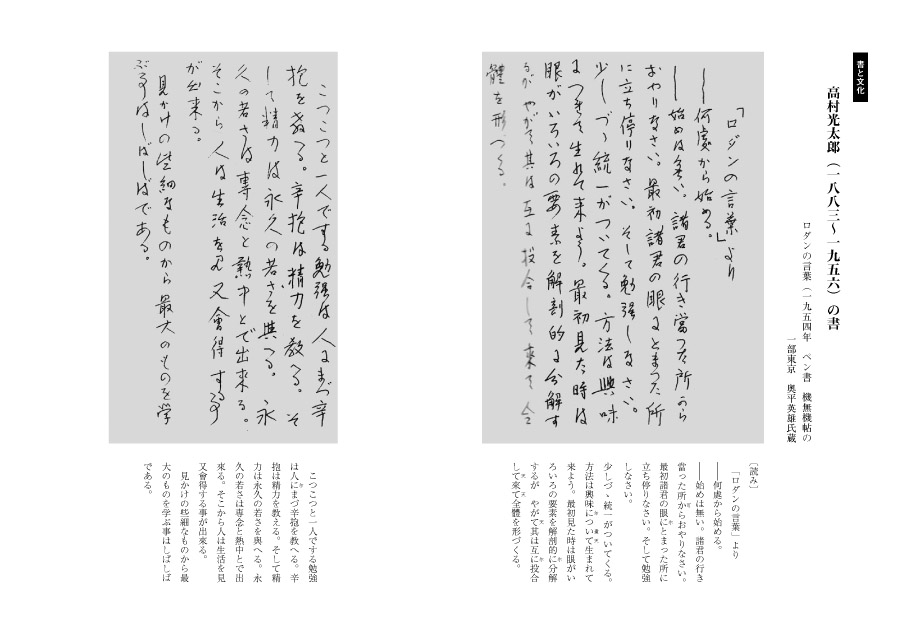 書と文化
高村光太郎（一八八三〜一九五六）の書
ロダンの言葉（一九五四年　ペン書　機無機帖の
一部東京　奥平英雄氏蔵
「ロダンの言葉」より
――何處から始める。
――始めは無い。諸君の行き當つた所から
おやりなさい。最初諸君の眼にとまつた所
に立ち停りなさい。そして勉強しなさい。
少しづゝ統一がついてくる。方法は興味
につきて生れて来よう。最初見た時は
眼がいろいろの要素を解剖的に分解す
るが やがて其は互に投合して來て 全
體を形づくる。
こつこつと一人でする勉強は人にまづ辛
抱を教へる。辛抱は精力を教へる。そ
して精力は永久の若さを與へる。永
久の若さは専念と熱中とで出來る。
そこから人は生活を見 又會得する事
が出來る。
見かけの些細なものから最大のものを学
ぶ事はしばしばである。
〔読み〕
「ロダンの言葉」より
――何處から始める。
――始めは無い。諸君の行き
當った所からおやりなさい。
最初諸君の眼にとまった所に
立ち停りなさい。そして勉強
しなさい。
少しづゝ統一がついてくる。
方法は興味について生まれて
来よう。最初見た時は眼がい
ろいろの要素を解剖的に分解
するが　やがて其は互に投合
して來て全體を形づくる。
こつこつと一人でする勉強
は人にまづ辛抱を教へる。辛
抱は精力を教える。そして精
力は永久の若さを與へる。永
久の若さは専念と熱中とで出
來る。そこから人は生活を見
又會得する事が出來る。
見かけの些細なものから最
大のものを学ぶ事はしばしば
である。